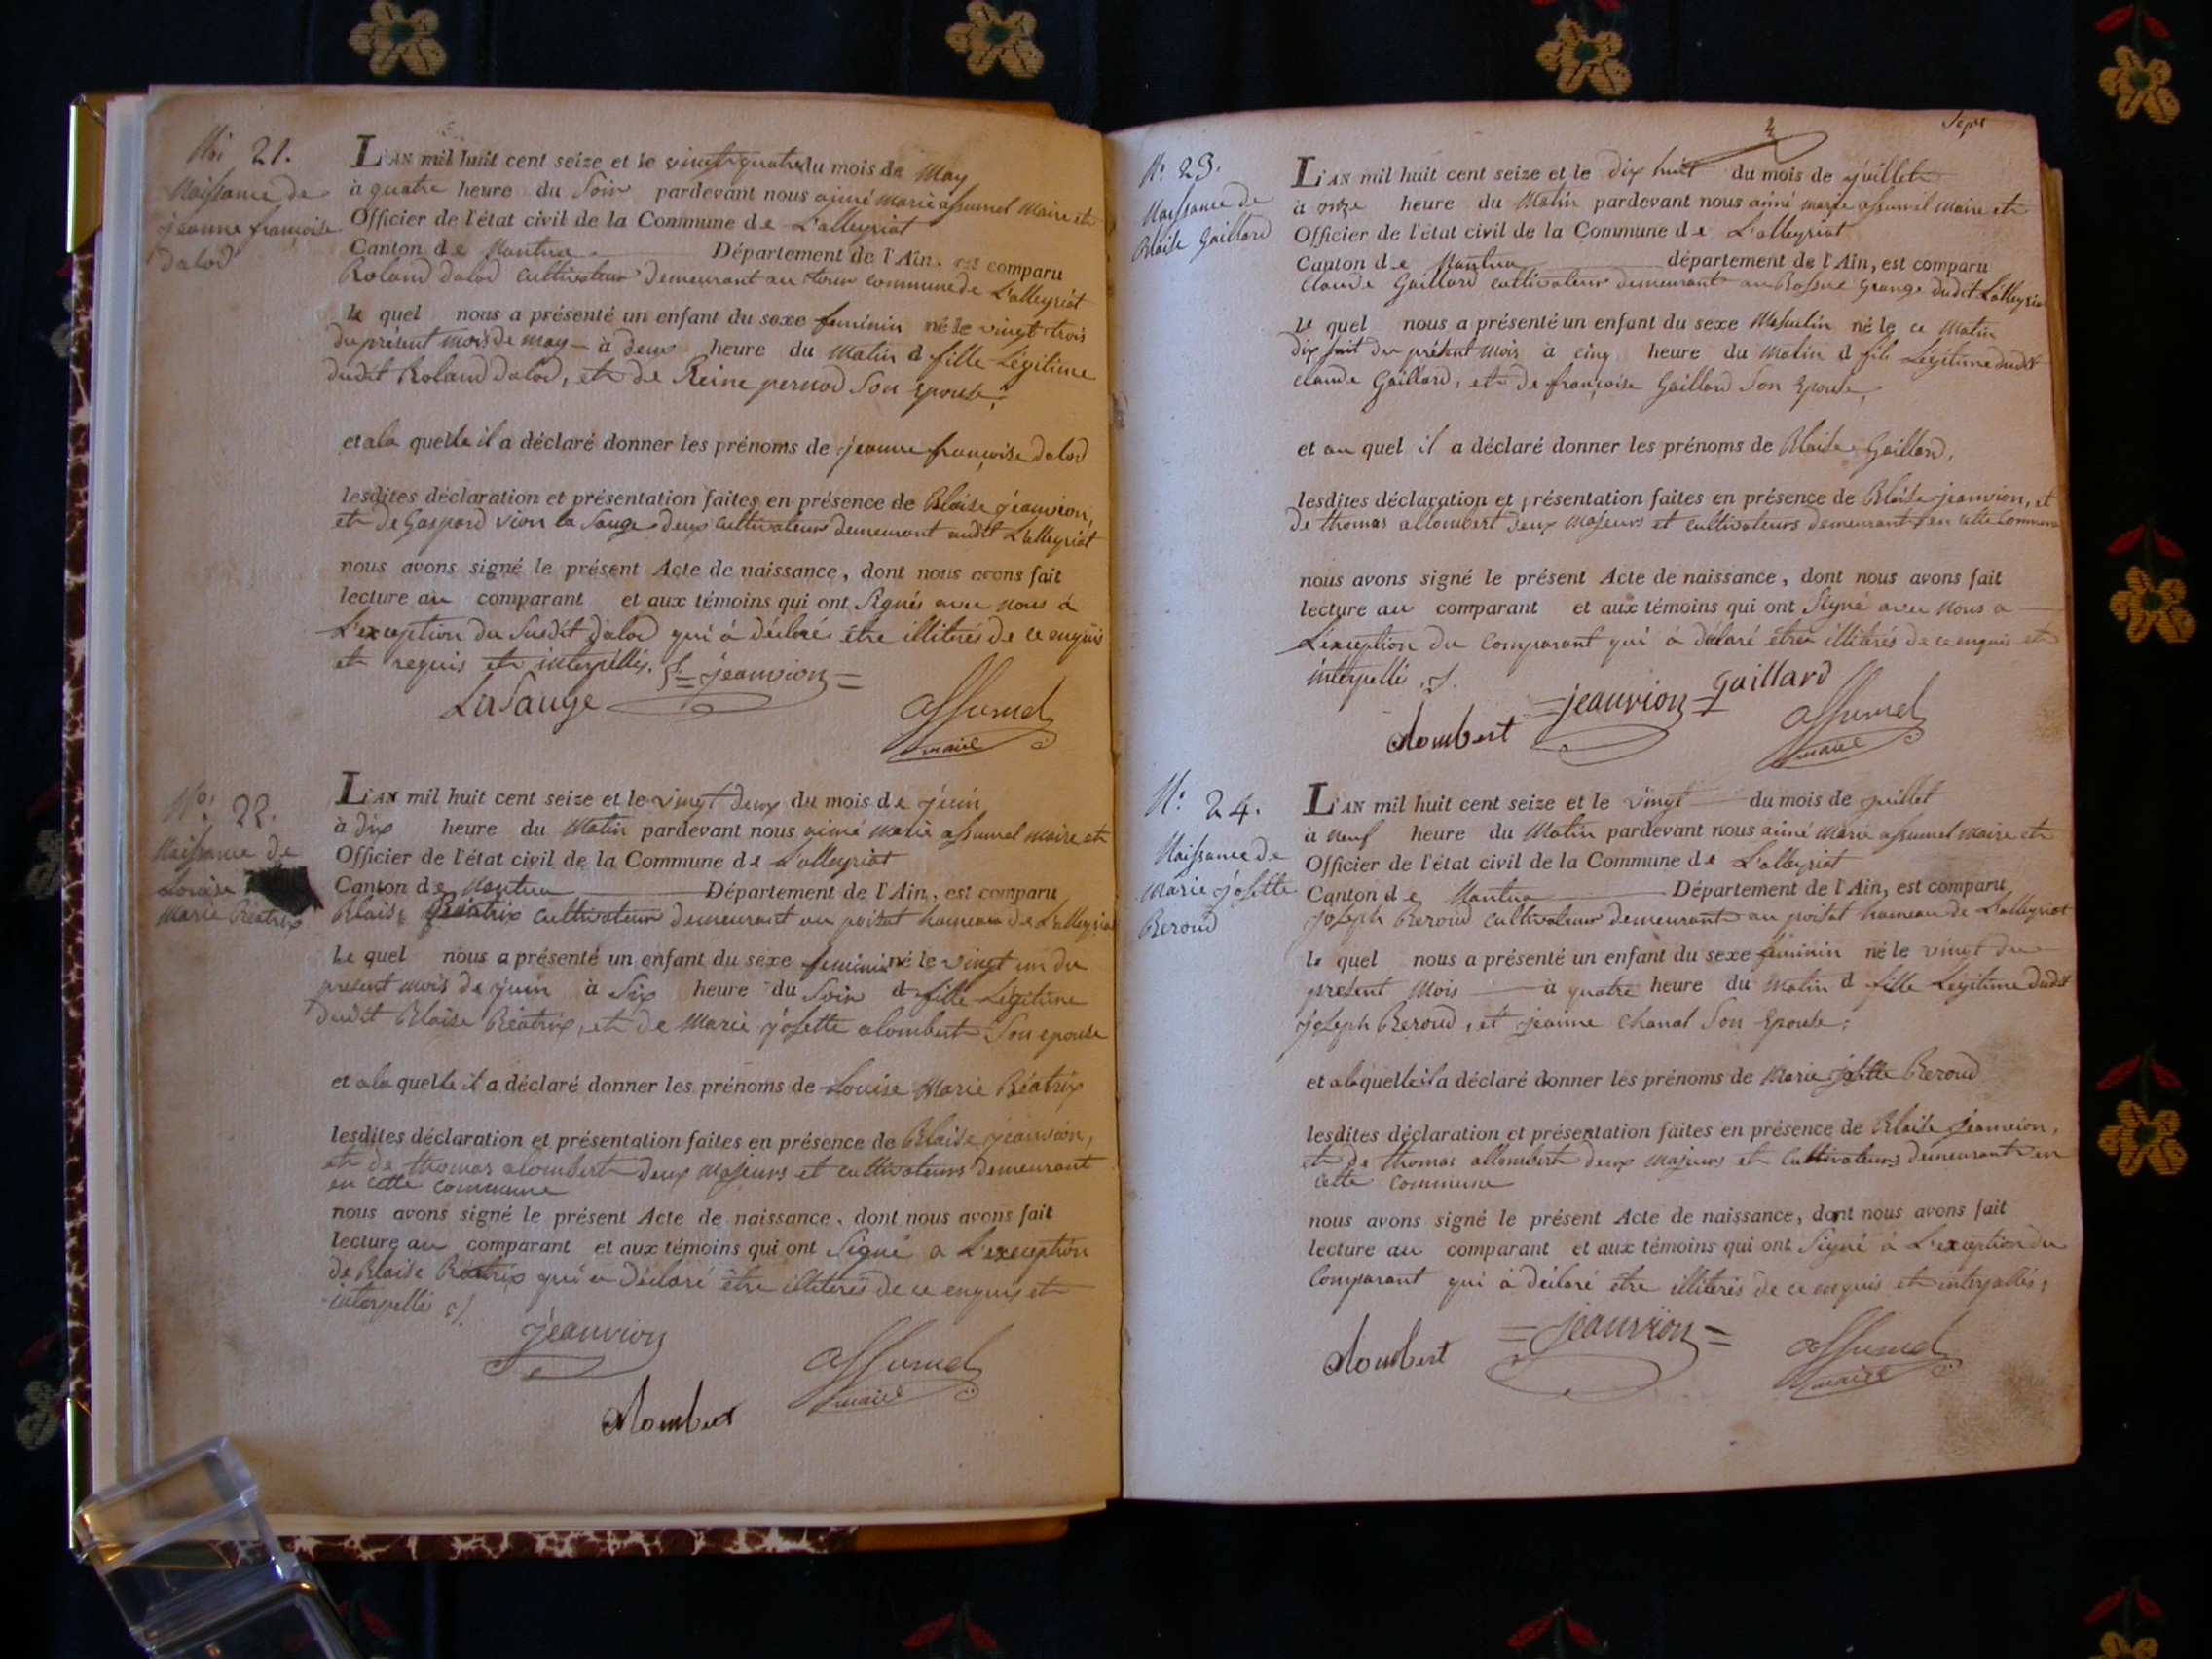 No. 21.
Naissance de
jeanne françoise
dalod
L'AN mil huit cent seize et le vingt quatre du mois de May
à quatre heure du Soir pardevant nous aimé marie assumel Maire et
Officier de l'état civil de la Commune de L'alleyriat
Canton de Nantua Département de l'Ain. est comparu
Roland dalod cultivateur demeurant au commune de L'alleyriat
le quel nous a présenté un enfant du sexe feminin né le vingt trois
du présent mois de may à deux heure du Matin d fille Légitime
dudit Roland dalod, et de Reine pernod Son Epouse,
et a la quelle il a déclaré donner les prénoms de jeanne françoise dalod
lesdites déclaration et présentation faites en présence de Blaise jeanvion,
et de Gaspard vion la Sauge deux cultivateurs demeurant audit L'alleyriat
nous avons signé le présent Acte de naissance, dont nous avons fait
lecture au comparant et aux témoins qui ont Signés avec nous à
L'exception du Susdit dalod qui à déclaré être illiterés de ce enquis
et requis et interpellés. =jeanvion=
LaSauge
assumel
maire
No. 22.
Naissance de
Louise
Marie Béatrix
L'AN mil huit cent seize et le vingt deux du mois de juin
à dix heure du Matin pardevant nous aimé marie assumel maire et
Officier de l'état civil de la Commune de L'alleyriat
Canton de Nantua Département de l'Ain, est comparu
Blaise Béatrix cultivateur demeurant au poizat hameau de L'alleyriat
le quel nous a présenté un enfant du sexe feminin né le vingt un du
present mois de juin à Six heure du Soir d fille Légitime
dudit Blaise Béatrix, et de Marie josette alombert Son epouse
et a la quelle il a déclaré donner les prénoms de Louise Marie Béatrix
lesdites déclaration et présentation faites en présence de Blaise jeanvion,
et de thomas alombert deux Majeurs et cultivateurs demeurant
en cette commune
nous avons signé le présent Acte de naissance, dont nous avons fait
lecture au comparant et aux témoins qui ont Signé a L'exception
de Blaise Béatrix qui a déclaré être illiterés de ce enquis et
interpellés
jeanvion
assumel
maire
Alombert
Sept
N. 23.
Naissance de
Blaise Gaillard
L'AN mil huit cent seize et le dix huit du mois de juillet
à onze heure du Matin pardevant nous aimé marie assumel maire et
Officier de l'état civil de la Commune de L'alleyriat
Canton de Nantua département de l'Ain, est comparu
Claude Gaillard cultivateur demeurant au Grange dudit L'alleyriat
le quel nous a présenté un enfant du sexe Masculin né le ce Matin
dix huit du présent mois à cinq heure du Matin d fils Légitime dudit
claude Gaillard, et de françoise Gaillard Son Epouse,
et au quel il a déclaré donner les prénoms de Blaise Gaillard,
lesdites déclaration et présentation faites en présence de Blaise jeanvion, et
de thomas allombert deux Majeurs et cultivateurs demeurant en cette Commune
nous avons signé le présent Acte de naissance, dont nous avons fait
lecture au comparant et aux témoins qui ont Signé avec nous a
L'exception du Comparant qui à déclaré etre illiterés de ce enquis et
interpellé
=jeanvion= gaillard
Alombert
assumel
maire
N. 24.
Naissance de
Marie josette
Beroud
L'AN mil huit cent seize et le vingt du mois de juillet
à neuf heure du Matin pardevant nous aimé Marie assumel Maire et
Officier de l'état civil de la Commune de L'alleyriat
Canton de Nantua Département de l'Ain, est comparu
joseph Beroud cultivateur demeurant au poizat hameau de L'alleyriat
le quel nous a présenté un enfant du sexe féminin né le vingt du
present Mois à quatre heure du Matin d fille Légitime dudit
joseph Beroud, et jeanne Chanal Son Epouse;
et a la quelle il a déclaré donner les prénoms de Marie josette Beroud
lesdites déclaration et présentation faites en présence de Blaise jeanvion,
et de thomas allombert deux majeurs et Cultivateurs demeurant en
cette Commune
nous avons signé le présent Acte de naissance, dont nous avons fait
lecture au comparant et aux témoins qui ont Signé à L'exception du
Comparant qui à déclaré etre illiterés de ce enquis et interpellés;
Alombert =jeanvion= assumel
maire